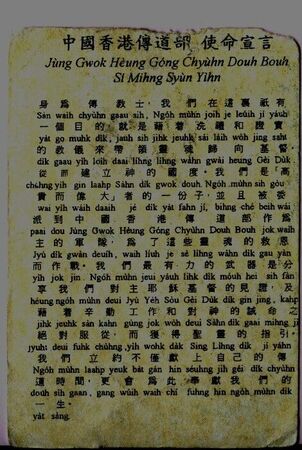 中國香港傳道部 使命宣言
Jùng Gwok Hèung Góng Chyùhn Douh Bouh
Si Mihng Syùn Yìhn
身為傳教士，我們在這裏祇有
Sàn waih chyùhn gaau sih, Ngóh mùhn joih je léuih jí yáuh
一個目的就是藉着洗禮和證實
yāt go muhk dīk, jauh sih jihk jeuhk sái láih wòh jing saht
的教儀來帶領靈魂歸向基督，
dīk gaau yìh lòih daai líhng lìhng wàhn gwài heung Gèi Dūk
從而建立神的國度。我們是「高
chùhng yìh gin laahp Sàhn dīk gwok douh. Ngóh mùhn sih gòu
貴而偉大」者的一份子，並且被委
wai yìh wáih daaih jé dīk yāt fahn jí, bihng ché beih wái
派到中國香港傳道部作為
paai dou Jùng Gwok Hèung Góng Chyùhn Douh Bouh jok waih
主的軍隊，為了這些靈魂的救恩
Jyú dīk gwàn deuih, waih líuh je sè lìhng wàhn dīk gau yàn
而作戰。我們最有力的武器是分
yìh jok jin. Ngóh mùhn jeui yáuh lihk dīk móuh hei sih fàn
享我們對主耶穌基督的見證，及
héung ngóh mùhn deui Jyú Yèh Sòu Gèi Dūk dīk gin jing, kahp
藉着辛勤工作和對神的誡命之
jihk jeuhk sàn kàhn gùng jok wòh deui Sàhn dīk gaai mihng jì
絕對服從，而獲得聖靈的指引。
jyuht deui fuhk chùhng, yìh wohk dāk Sing Lìhng dīk jí yáhn
我們立約不僅獻上自己的傳
Ngóh mùhn laahp yeuk bāt gán hin séuhng jih géi dīk chyùhn
道這時間，更會為此奉獻我們的
douh sìh gaan, gang wúih waih chí fuhng hin ngóh mùhn dīk
一生。
yāt sàng.